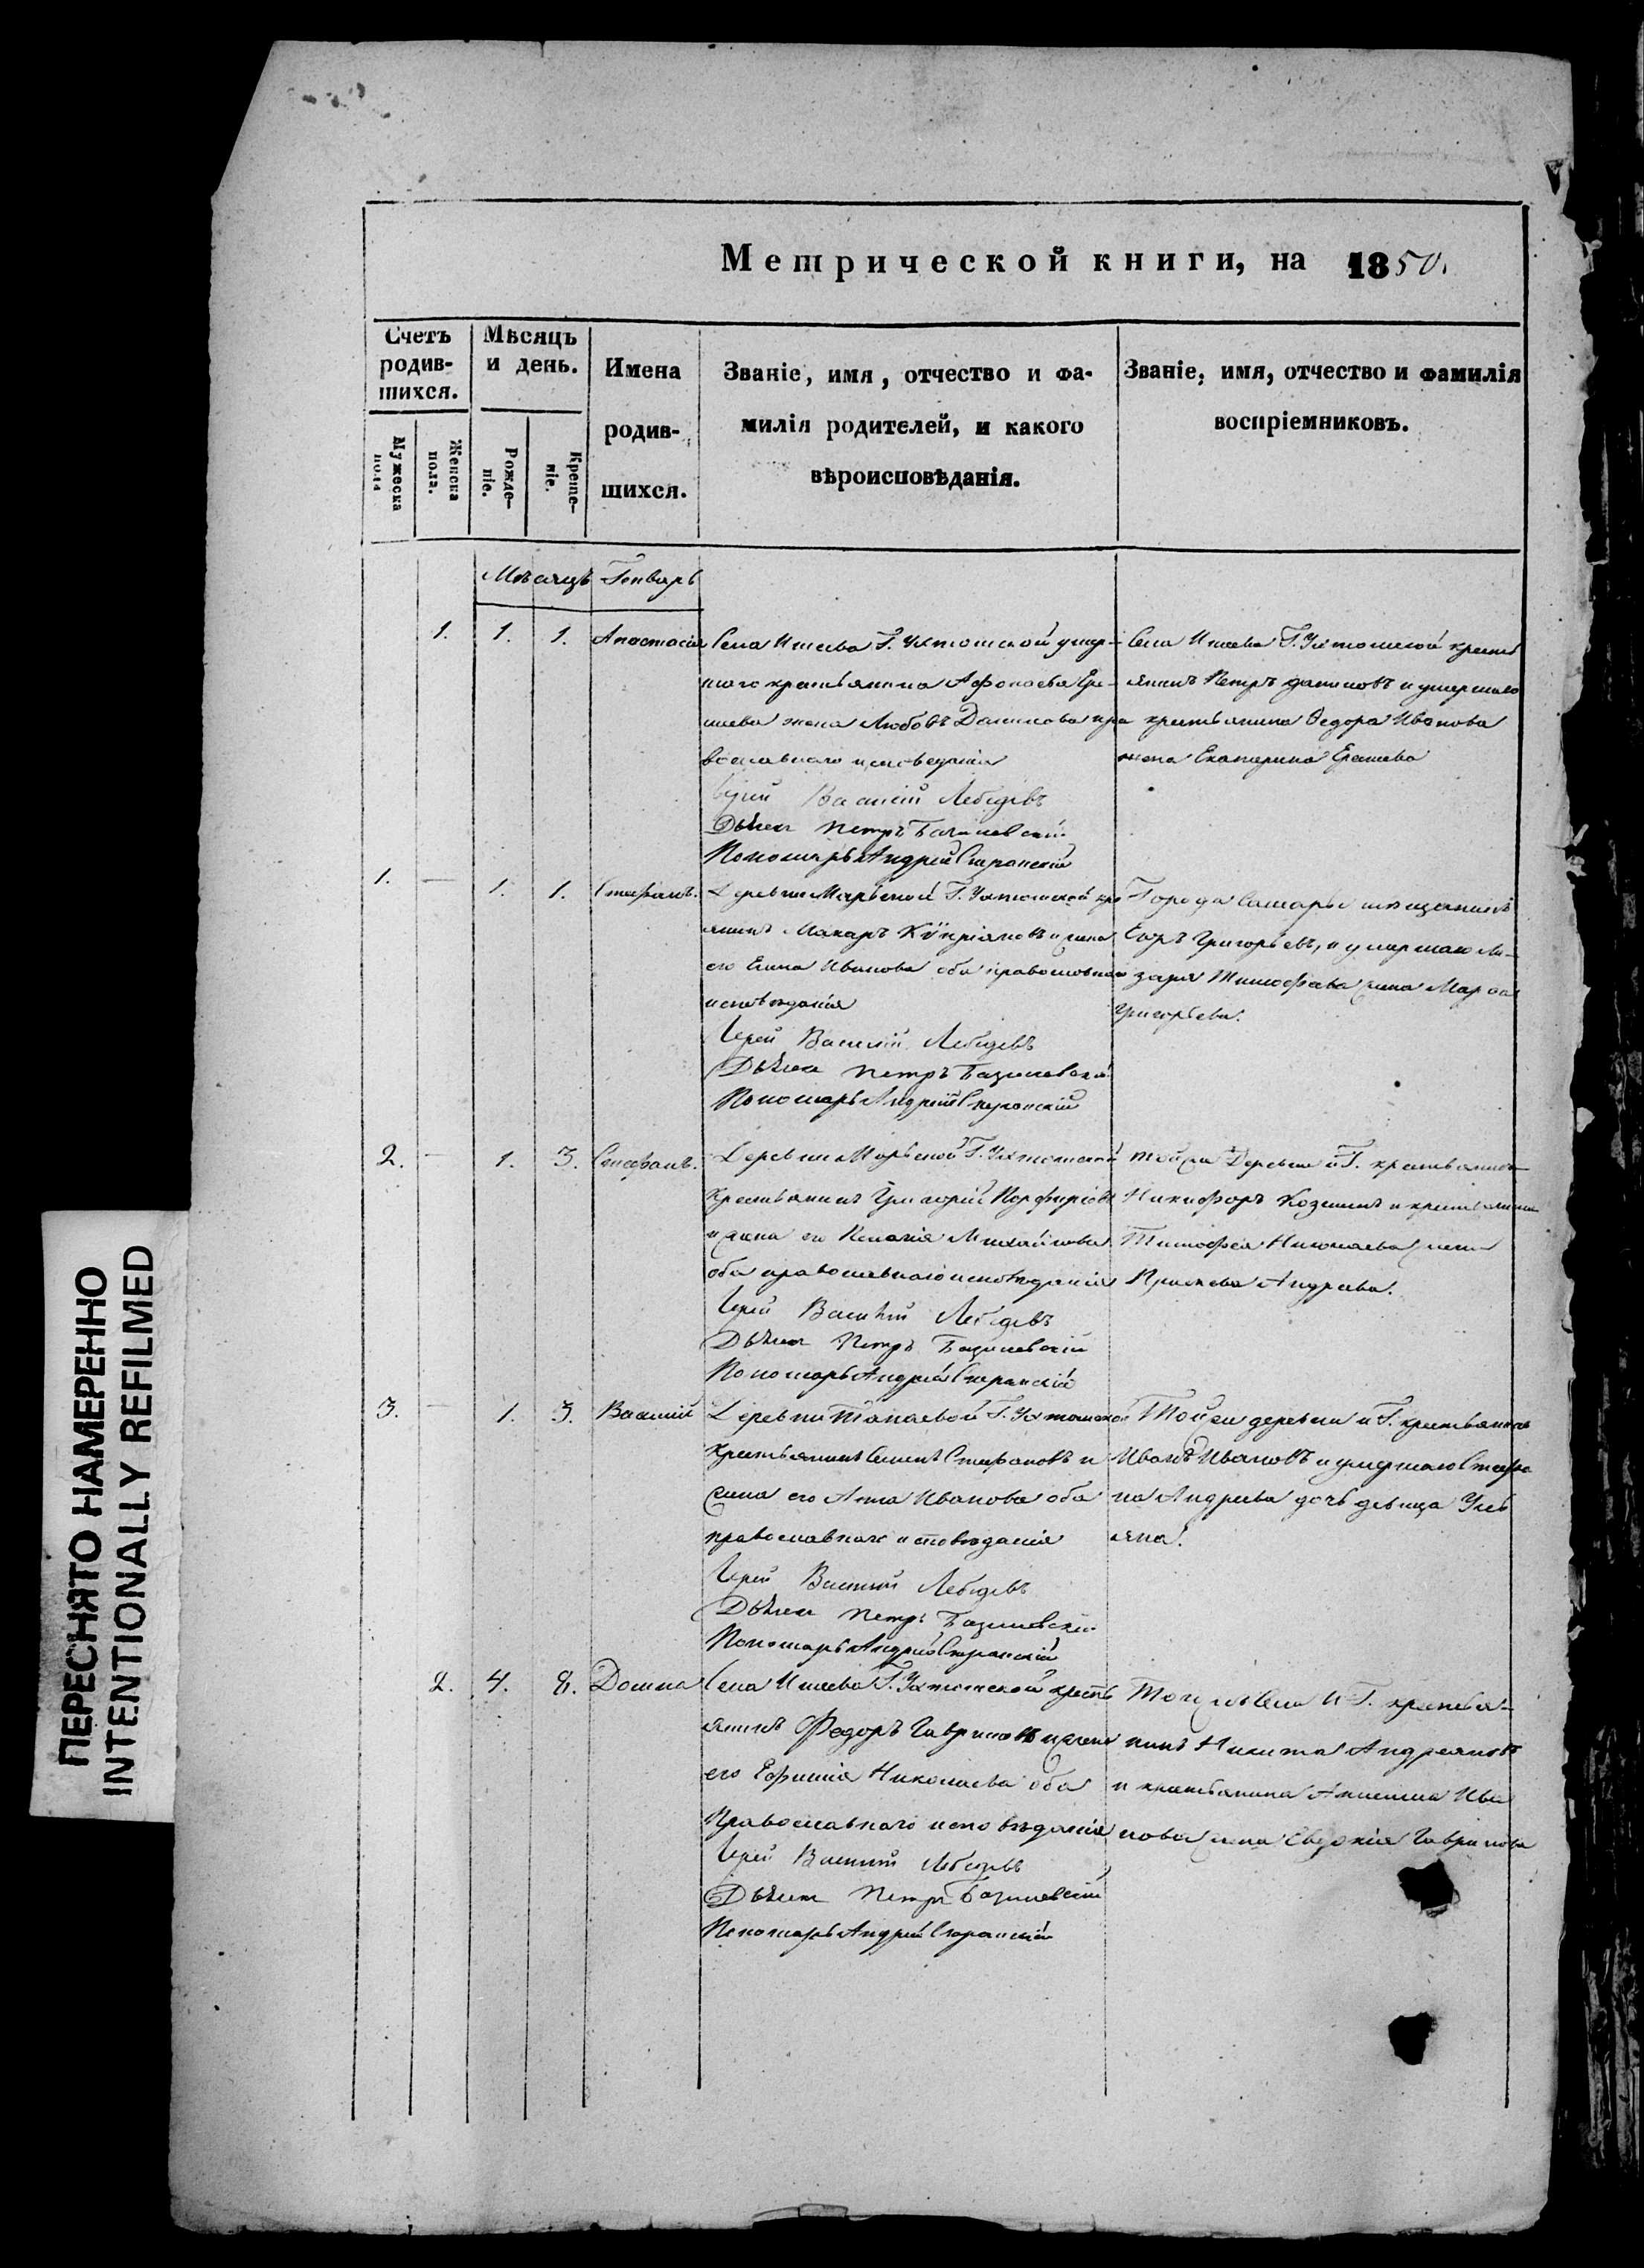 Метрической книги, на 1850.
Счетъ родив-шихся.
Мѣсяцъ и день.
Имена родив-шихся.
Званіе, имя, отчество и фа-
милія родителей, и какого
вѣроисповѣданія.
Званіе, имя, отчество и фамилія
воспріемниковъ.
Мужеска пола
Женска пола.
Рожде-ніе.
Креще-ніе.
Мѣсяцъ Генварь
1. 1. 1. Анастасія
Села Г. Ухтомской умер-
шаго крестьянина
жена Любовъ Данилова пра
вославнаго исповеданія
Іерей Василій Лебедевъ
Дьячек Петръ Базилевскій
Пономарь Андрей Сперанскій
Села Г. Ухтомской кресть
янинъ Петръ Даниловъ и умершаго
крестьянина Ѳедора Иванова
жена Екатерина
1. — 1. 1. Стефанъ.
Деревни Марьиной Г. Ухтомской кре
янинъ Макаръ и жена
его Елена Иванова оба православнаго
исповѣданія
Іерей Василій Лебедевъ
Дьячек Петръ Базилевскій
Пономарь Андрей Сперанскій
Города Самары мещанинъ
Егоръ Григорьевъ, и умершаго Ла-
заря Тимофева жена Марѳа
Григорьева.
2. — 1. 3. Стефанъ.
Деревни Марьиной Г. Ухтомской
Крестьянинъ Григорій Порфирьевъ
и жена его Пелагія Михайлова
оба православнаго исповѣданія
Іерей Василій Лебедевъ
Дьячек Петръ Базилевскій
Пономарь Андрей Сперанскій
той же Деревни и Г. крестьянинъ
Никифоръ Козминъ и крестьянина
Тимофея Николаева жена
Андреева.
3. — 1. 3. Василій
Деревни Танаевой Г. Ухтомской
крестьянинъ Семенъ Стефановъ и
жена его Анна Иванова оба
православнаго исповѣданія
Іерей Василій Лебедевъ
Дьячек Петръ Базилевскій
Пономарь Андрей Сперанскій
Той же деревни и Г. крестьянинъ
Иванъ Ивановъ и умершаго Стефа
на Андреева дочь девица Уль
яна.
2. 4. 8. Домна
Села Г. Ухтомской кресть
янинъ Федоръ Гавриловъ и жена
его Ефимія Николаева оба
Православнаго исповѣданія
Іерей Василій Лебедевъ
Дьячек Петръ Базилевскій
Пономарь Андрей Сперанскій
Той же Села и Г. крестья-
нинъ Никита Андреяновъ
и крестьянина Ива
нова жена Евдокія Гаврилова
ПЕРЕСНЯТО НАМЕРЕННО
INTENTIONALLY REFILMED